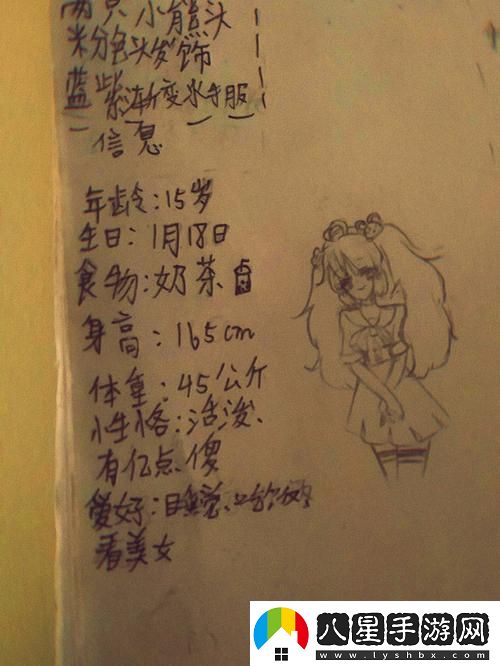 两只小熊头
粉色头发饰
蓝紫渐变水手服
信息
年龄:15岁
生日:1月18日
食物:奶茶
身高:165cm
体重:45公斤
性格:活泼、
有亿点傻
爱好:睡觉、
看美女
八星手游网
www.lyshbx.com